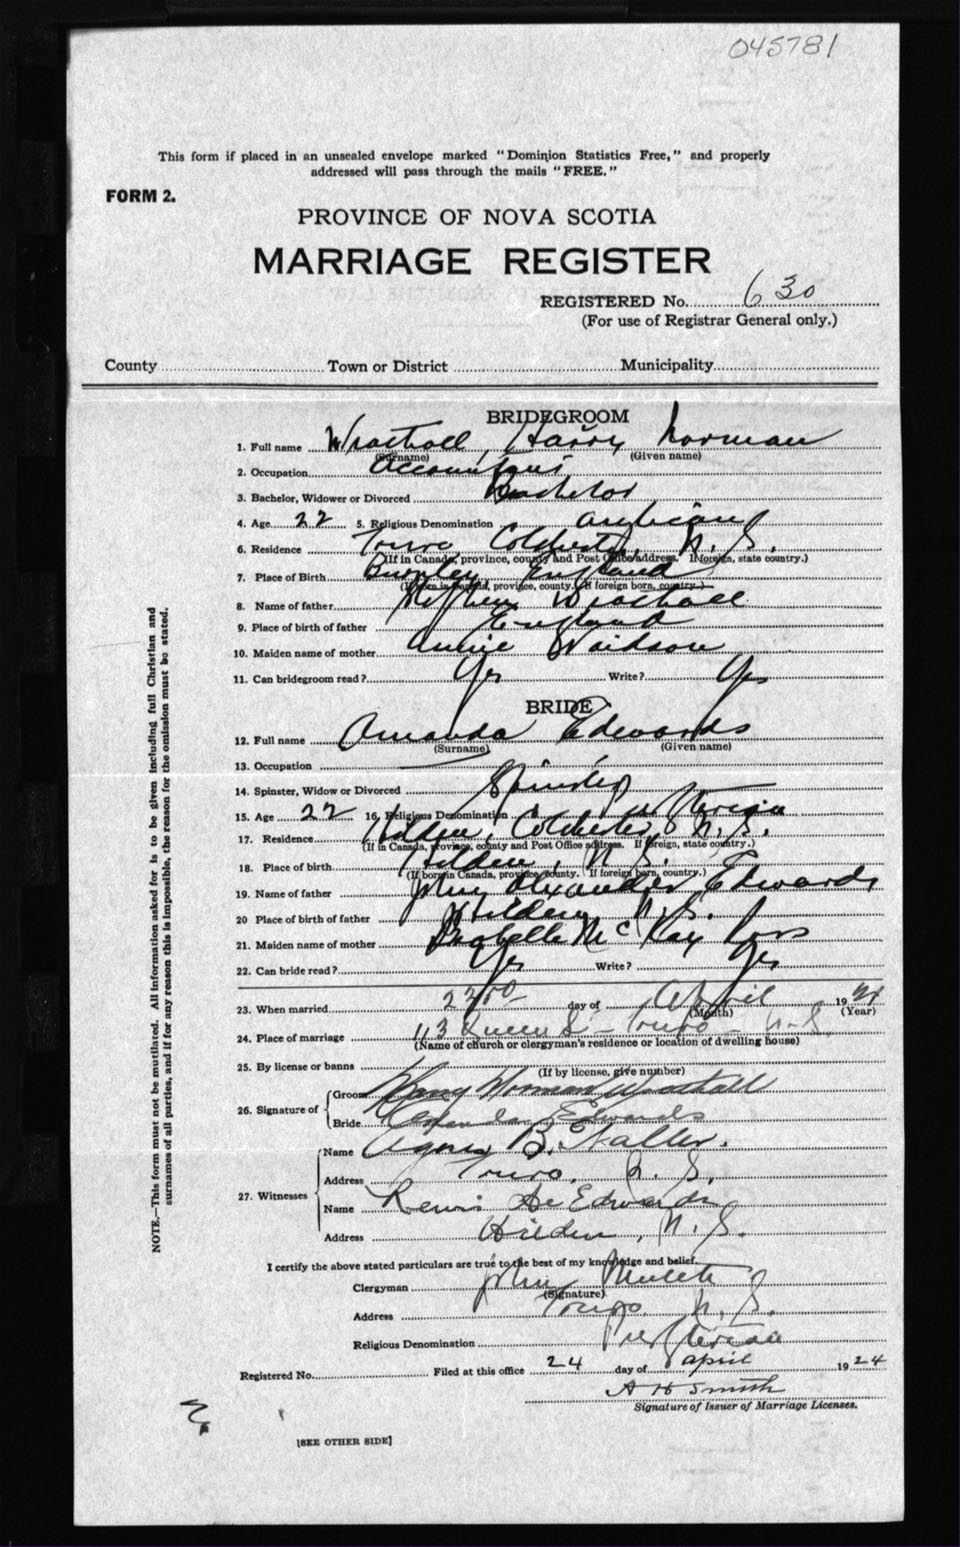 045781
This form if placed in an unsealed envelope marked "Dominion Statistics Free," and properly
addressed will pass through the mails "FREE."
FORM 2.
PROVINCE OF NOVA SCOTIA
MARRIAGE REGISTER
REGISTERED No. 630
(For use of Registrar General only.)
County Town or District Municipality
BRIDEGROOM
1. Full name Wrathall, Harry Norman
(Surname) (Given name)
2. Occupation Accountant
3. Bachelor, Widower or Divorced Bachelor
4. Age 22 5. Religious Denomination Anglican
6. Residence Truro Colchester, N. S.
(If in Canada, province, county and Post Office address. If foreign, state country.)
7. Place of Birth England
(If born in Canada, province, county. If foreign born, country.)
8. Name of father Stephen Wrathall
9. Place of birth of father England
10. Maiden name of mother Annie
11. Can bridegroom read? Yes Write? Yes
BRIDE
12. Full name Amanda Edwards
(Surname) (Given name)
13. Occupation
14. Spinster, Widow or Divorced Spinster
15. Age 22 16. Religious Denomination
17. Residence Hilden, Colchester, N. S.
(If in Canada, province, county and Post Office address. If foreign, state country.)
18. Place of birth Hilden, N. S.
(If born in Canada, province, county. If foreign born, country.)
19. Name of father John Alexander Edwards
20 Place of birth of father Hilden N. S.
21. Maiden name of mother Isabelle McKay Ross
22. Can bride read? Yes Write? Yes
23. When married day of April 19
(Month) (Year)
24. Place of marriage 113 Queen St - Truro - N. S.
(Name of church or clergyman's residence or location of dwelling house)
25. By license or banns
(If by license, give number)
26. Signature of
Groom Harry Norman Wrathall
Bride Edwards
27. Witnesses
Name Agnes B.
Address Truro, N. S.
Name Edwards
Address Hilden, N. S.
I certify the above stated particulars are true to the best of my knowledge and belief.
Clergyman John
(Signature)
Address Truro N. S.
Religious Denomination Presbyterian
Registered No. Filed at this office 24 day of april 1924
A H Smith
Signature of Issuer of Marriage Licenses.
[SEE OTHER SIDE]
NOTE.—This form must not be mutilated. All information asked for is to be given including full Christian and
surnames of all parties, and if for any reason this is impossible, the reason for the omission must be stated.